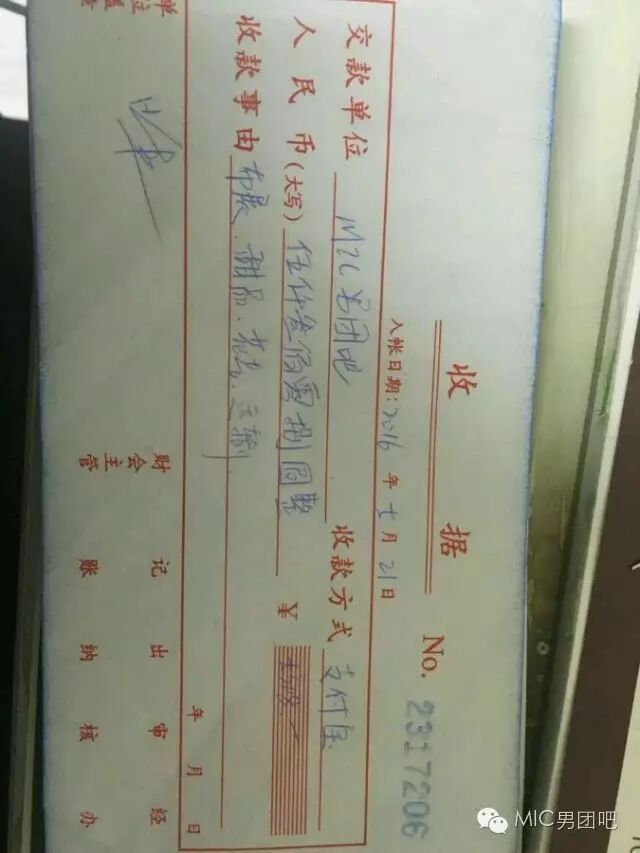 收 据
No. 2317206
入帐日期：2016 年 十 月 21 日
交款单位 MIC男团吧 收款方式 支付宝
人民币（大写）伍仟叁佰零捌圆整 ￥ 5308
收款事由 布展、甜品、花艺、运输
年 月 日
单位盖章 财会主管 记账 出纳 审核 经办
MIC男团吧